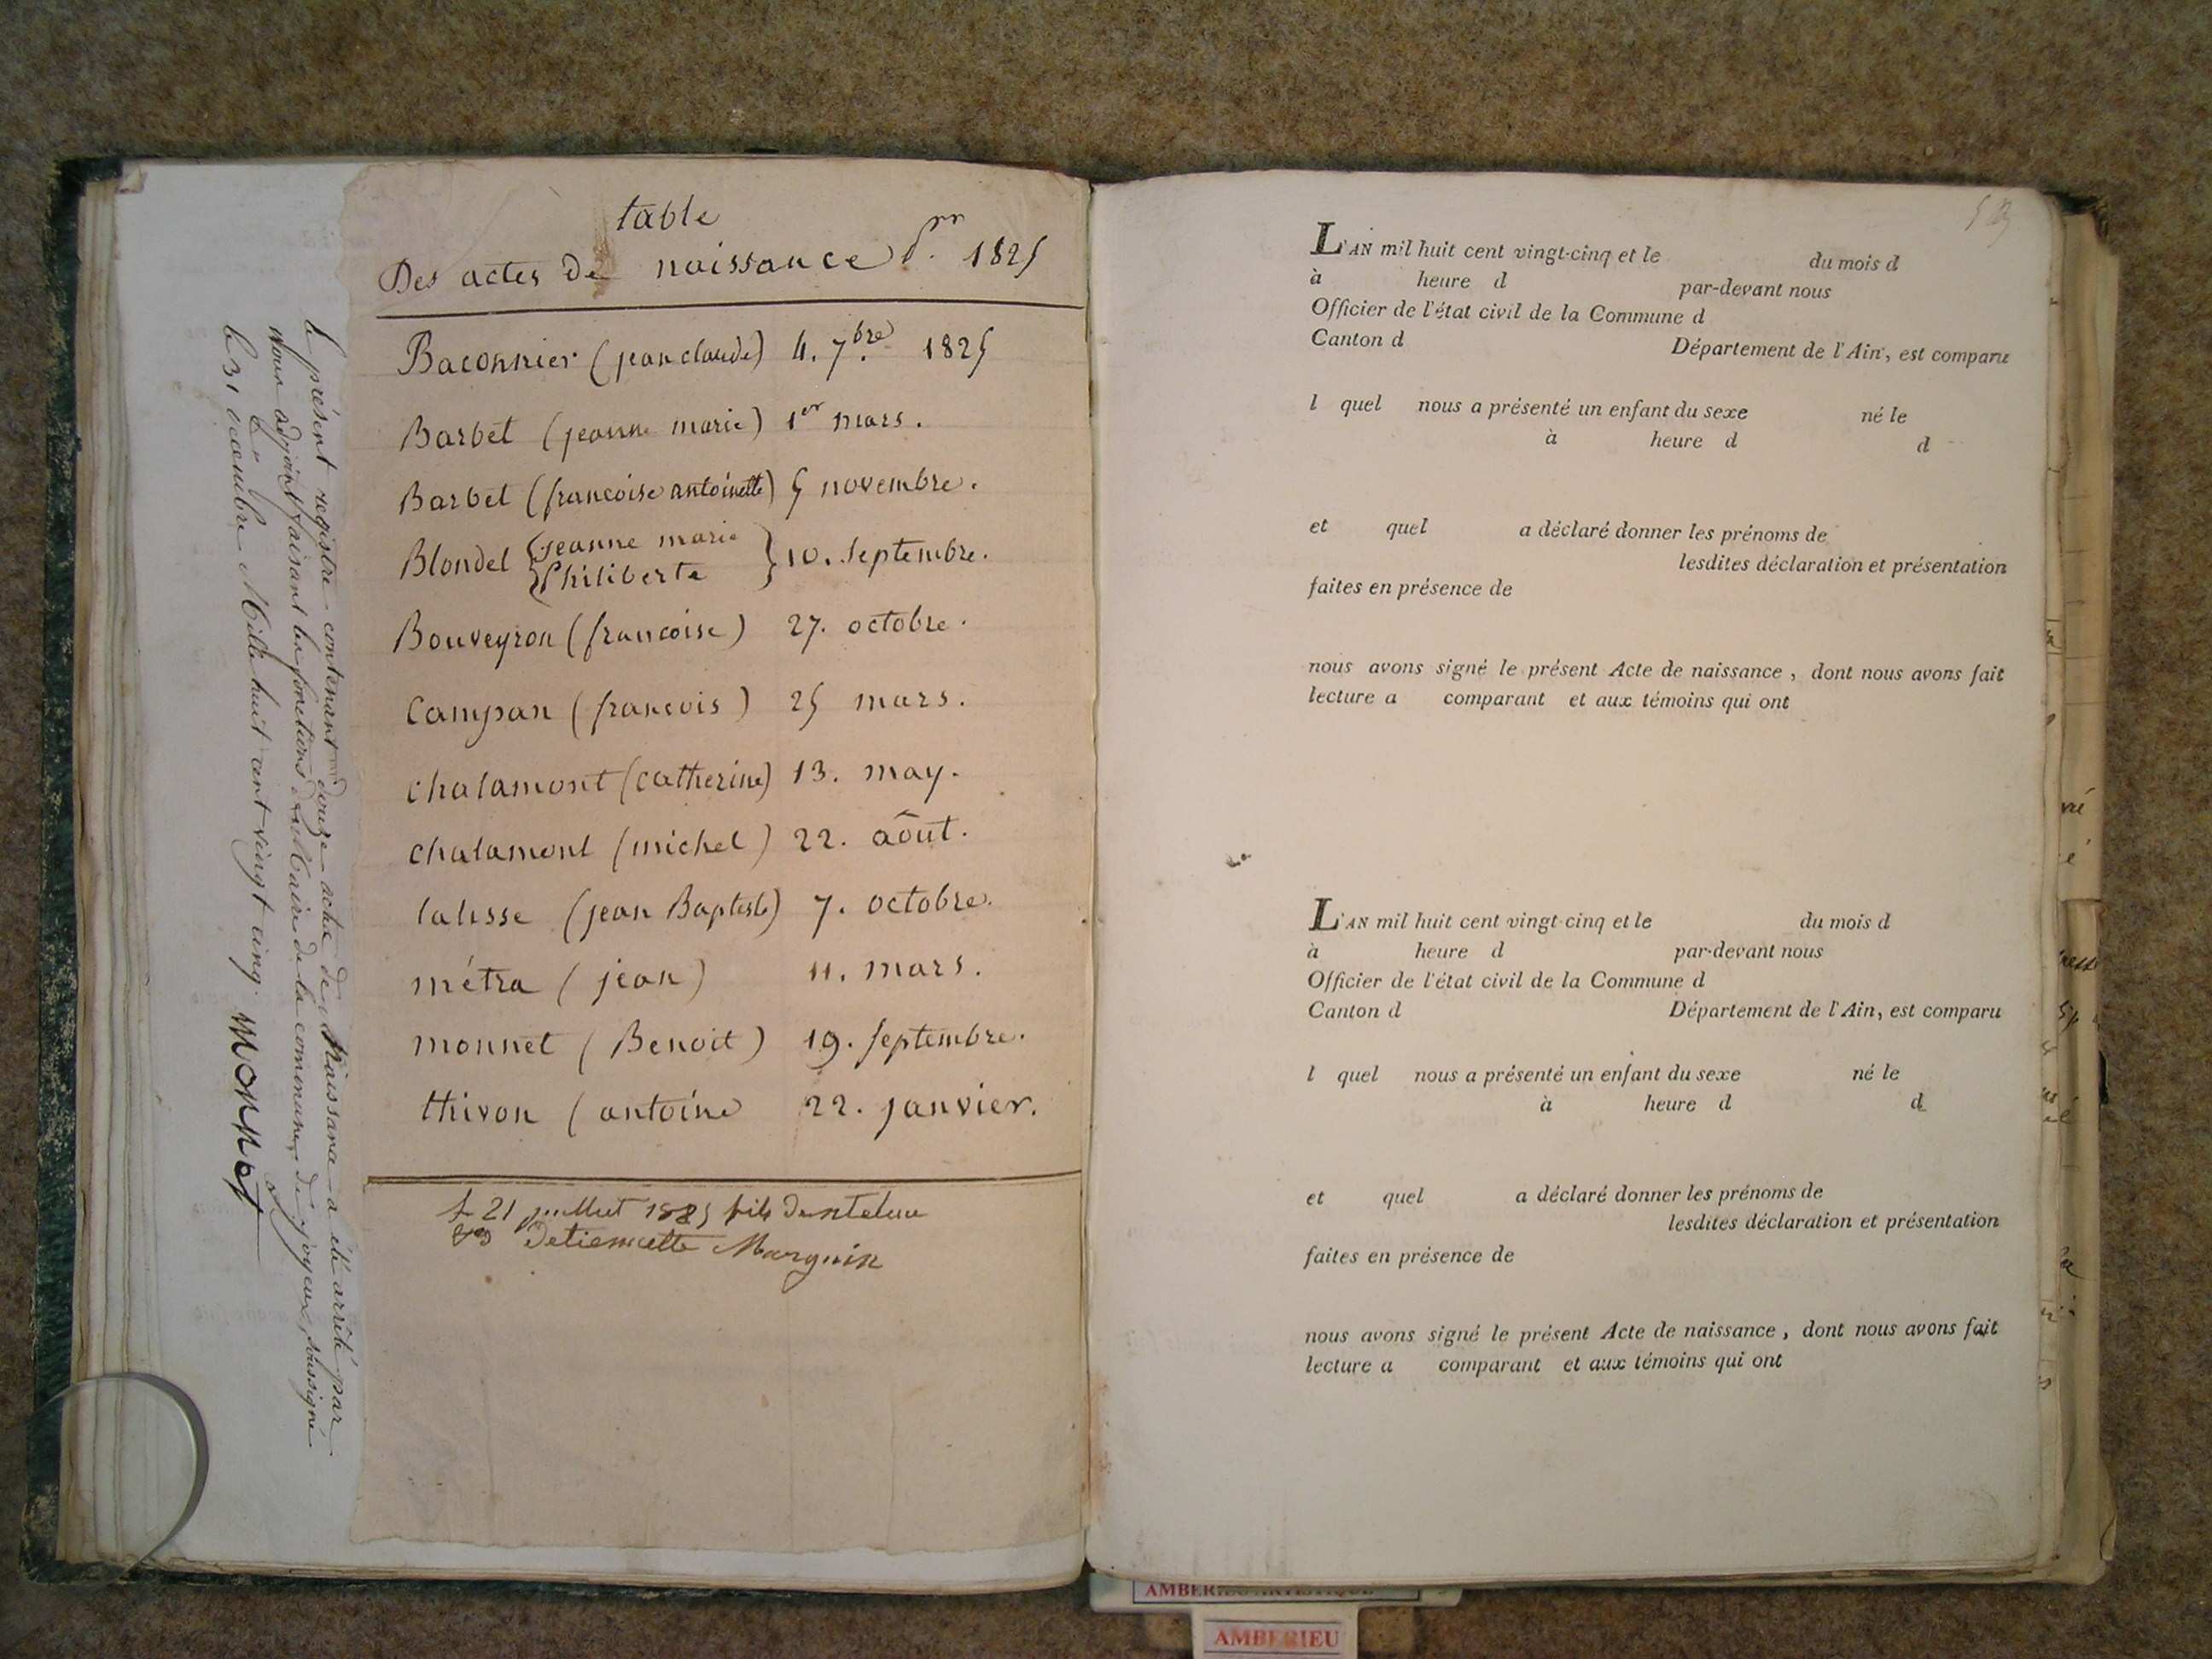 table
Des actes de naissance pr. 1825
Baconnier (jean claude) 4. 7bre. 1825
Barbet (jeanne marie) 1er mars.
Barbet (francoise antoinette) 5 novembre.
Blondel { jeanne marie
Philiberte } 10. Septembre.
Bouveyron (francoise) 27. octobre.
Campan (francois) 25 mars.
chalamont (catherine) 13. may.
chalamont (michel) 22. août.
lalisse (jean Baptiste) 7. octobre.
métra (jean) 11. mars.
monnet (Benoit) 19. Septembre.
thivon (antoine 22. janvier.
21 juillet 1825 fils
Detiennette Marguin
le présent registre contenant douze actes de Naissance a été arrêté par
Nous adjoint faisant les fonctions de Maire de la commune de joyeux, soussigné
le 31 décembre Mille huit cent vingt cinq.
Monnet
L'AN mil huit cent vingt-cinq et le du mois d
à heure d par-devant nous
Officier de l'état civil de la Commune d
Canton d Département de l'Ain, est comparu
l quel nous a présenté un enfant du sexe né le
à heure d d
et quel a déclaré donner les prénoms de
lesdites déclaration et présentation
faites en présence de
nous avons signé le présent Acte de naissance, dont nous avons fait
lecture a comparant et aux témoins qui ont
L'AN mil huit cent vingt-cinq et le du mois d
à heure d par-devant nous
Officier de l'état civil de la Commune d
Canton d Département de l'Ain, est comparu
l quel nous a présenté un enfant du sexe né le
à heure d d
et quel a déclaré donner les prénoms de
lesdites déclaration et présentation
faites en présence de
nous avons signé le présent Acte de naissance, dont nous avons fait
lecture a comparant et aux témoins qui ont
AMBERIEU